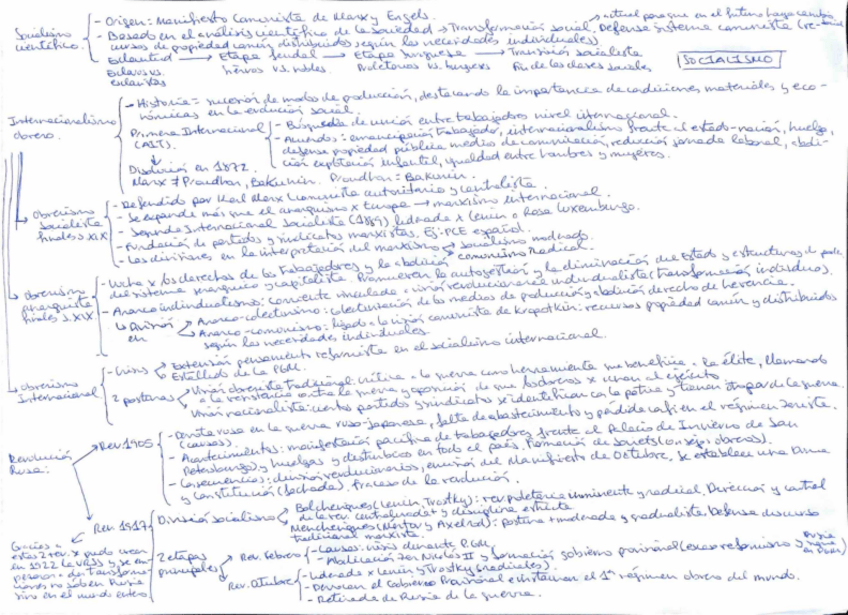 Socialismo científico.
- Origen: Manifiesto Comunista de Marx y Engels.
- Basado en el análisis científico de la sociedad → Transformación social, Defense sisteme comuniste (re-
→ actual para que en el futuro haya cambio
cursos de propiedad común, distribuidos según las necesidades individuales)
Esclavitud → Etapa feudal → Etapa burguesa → Transición socialista
Esclavos vs. esclavistas
siervos vs. nobles.
Proletarios vs. burgueses
Fin de las clases sociales
SOCIALISMO
Internacionalismo obrero.
- Historia = sucesión de modos de producción, destacando la importancia de condiciones materiales y eco-
nómicas en la evolución social.
Primera Internacional (AIT).
- Búsqueda de unión entre trabajadores nivel internacional.
- Acuerdos: emancipación trabajador, internacionalismo frente al estado-nación, huelga,
defensa propiedad pública medios de comunicación, reducción jornada laboral, aboli-
ción explotación infantil, igualdad entre hombres y mujeres.
Disolución en 1872.
Marx ≠ Proudhon, Bakunin. Proudhon = Bakunin.
obrerismo socialista finales s XIX
- Defendido por Karl Marx (comunista autoritario y centralista.
- Se expande más que el anarquismo x Europa → marxismo internacional.
- Segunda Internacional Socialista (1889) liderada x Lenin o Rosa Luxemburgo.
- Fundación de partidos y sindicatos marxistas. Ej: PCE español.
- Las divisiones en la interpretación del marxismo
socialismo moderado
comunismo radical.
obrerismo anarquista finales s. XIX
- Lucha x los derechos de los trabajadores y la abolición
del sistema monárquico y capitalista. Promueven la autogestión y la eliminación del Estado y estructuras de poder.
- Anarco individualismo: corriente vinculada a visión revolucionaria e individualista (transformación individuo).
↳ División en
Anarco-colectivismo: colectivización de los medios de producción y abolición derecho de herencia.
Anarco-comunismo: ligado a la visión comunista de Kropotkin: recursos propiedad común y distribuidos
según las necesidades individuales.
obrerismo Internacional
- Crisis
Extensión pensamiento reformista en el socialismo internacional.
Estallido de la PGM.
2 posturas
Visión obrerista tradicional: crítica a la guerra como herramienta que beneficia a la élite, llamando
a la resistencia contra la guerra y oposición de que los obreros x unan al ejército
Visión nacionalista: ciertos partidos y sindicatos se identifican con la patria y tienen
Revolución Rusa:
Rev. 1905
- Derrota rusa en la guerra ruso-japonesa, falta de abastecimiento y pérdida confi en el régimen zarista.
(causas).
- Acontecimientos: manifestación pacífica de trabajadores frente al Palacio de Invierno de San
Petersburgo y huelgas y disturbios en todo el país. Formación de soviets (consejos obreros).
- Consecuencias: división revolucionarios, emisión del Manifiesto de Octubre, se establece una Duma
y Constitución (fachada). Fracaso de la revolución.
Rev. 1917
División socialismo
Bolcheviques (Lenin, Trotsky): rev proletaria inminente y radical. Dirección y control
de la rev. centralizados y disciplina estricta
Mencheviques (Martov y Axelrod): postura + moderada y gradualista. Defensa discurso
tradicional marxista.
2 etapas principales
Rev. Febrero
- Causas: crisis durante PGM.
- Abdicación Zar Nicolás II y formación gobierno provisional (escaso reformismo y Rusia sigue en PGM)
Rev. Octubre
- Liderada x Lenin y Trotsky (radicales).
- Derrocan al Gobierno Provisional e instauran el 1er régimen obrero del mundo.
- Retirada de Rusia de la guerra.
Gracias a estas 2 rev. x pudo crear en 1922 la URSS y se em-